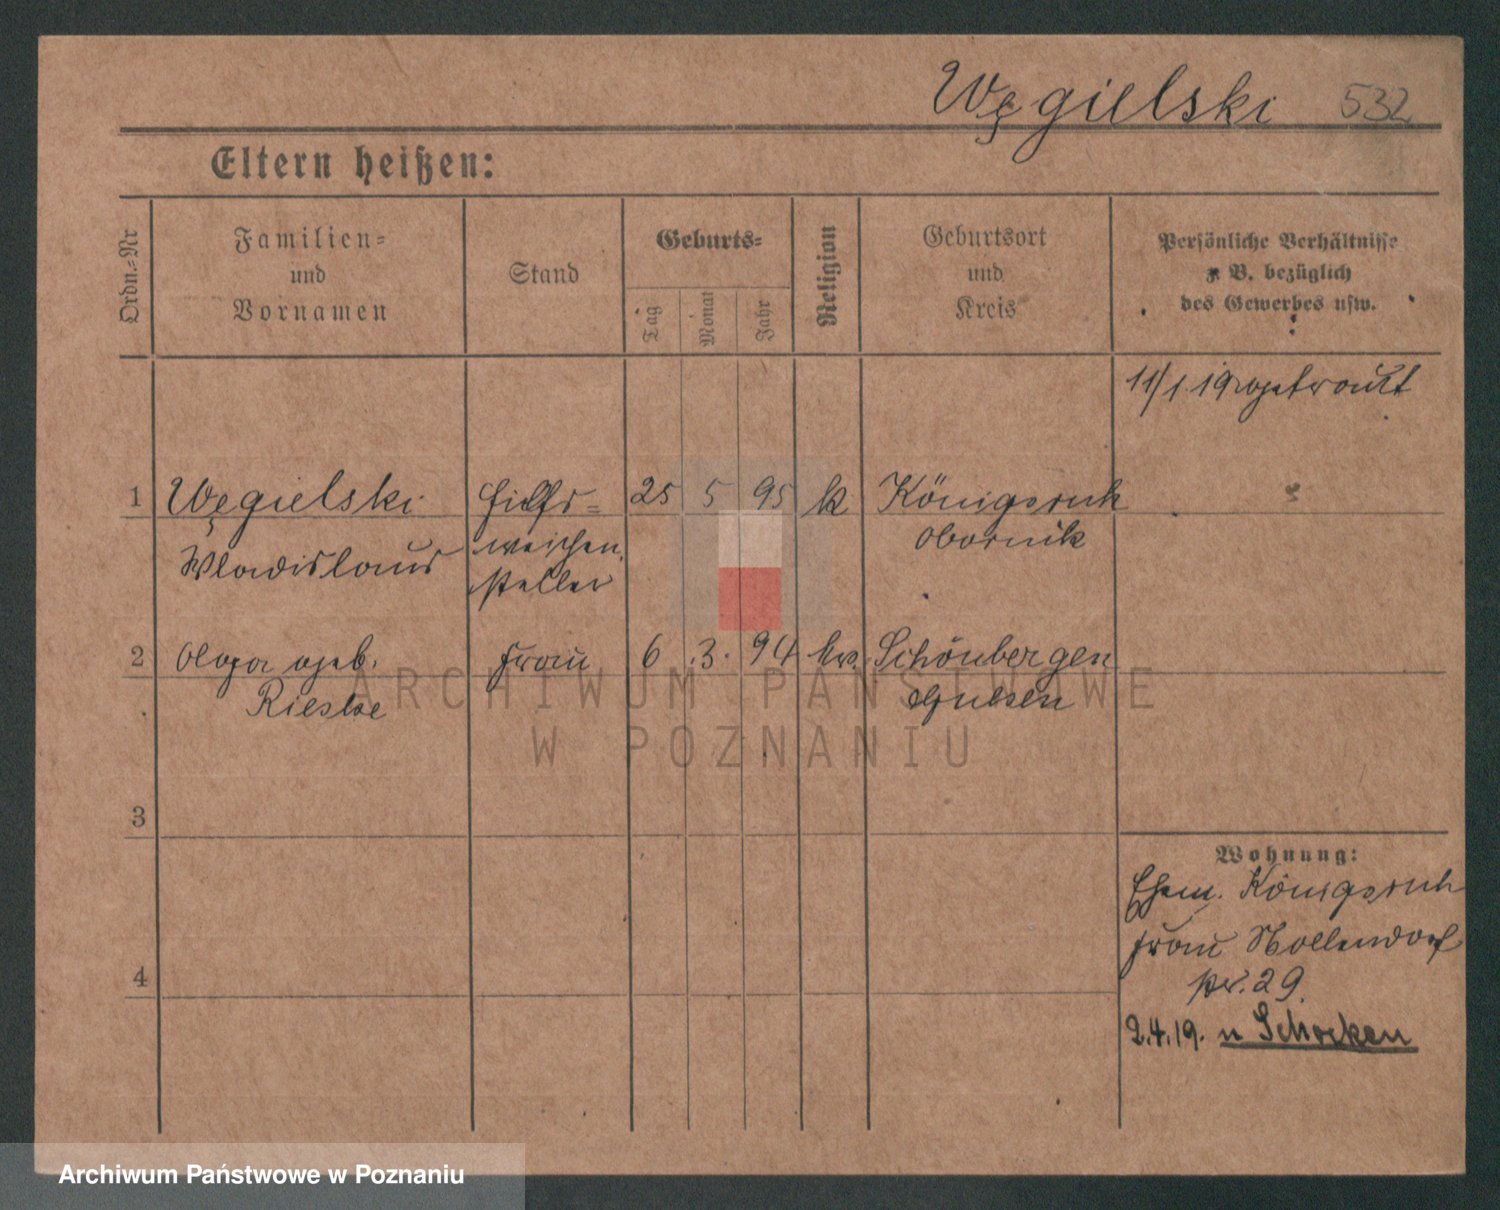 Węgielski 532
Eltern heißen:
Ordn.-Nr
Familien- und Vornamen
Stand
Geburts-
Tag
Monat
Jahr
Religion
Geburtsort und Kreis
Persönliche Verhältnisse
z. B. bezüglich
des Gewerbes usw.
11/1. 19 getrault
1 Węgielski Hilfs- 25 5 95 k Königsruh
Wladislaus weichen Obornik
steller
2 Olga geb. Frau 6 .3. 94 Schönbergen
Rieske Gnesen
3
4
Wohnung:
Ehem. Königsruh
Frau Nollendorf
str. 29.
2.4.19. n Schocken
ARCHIWUM PAŃSTWOWE
W POZNANIU
Archiwum Państwowe w Poznaniu